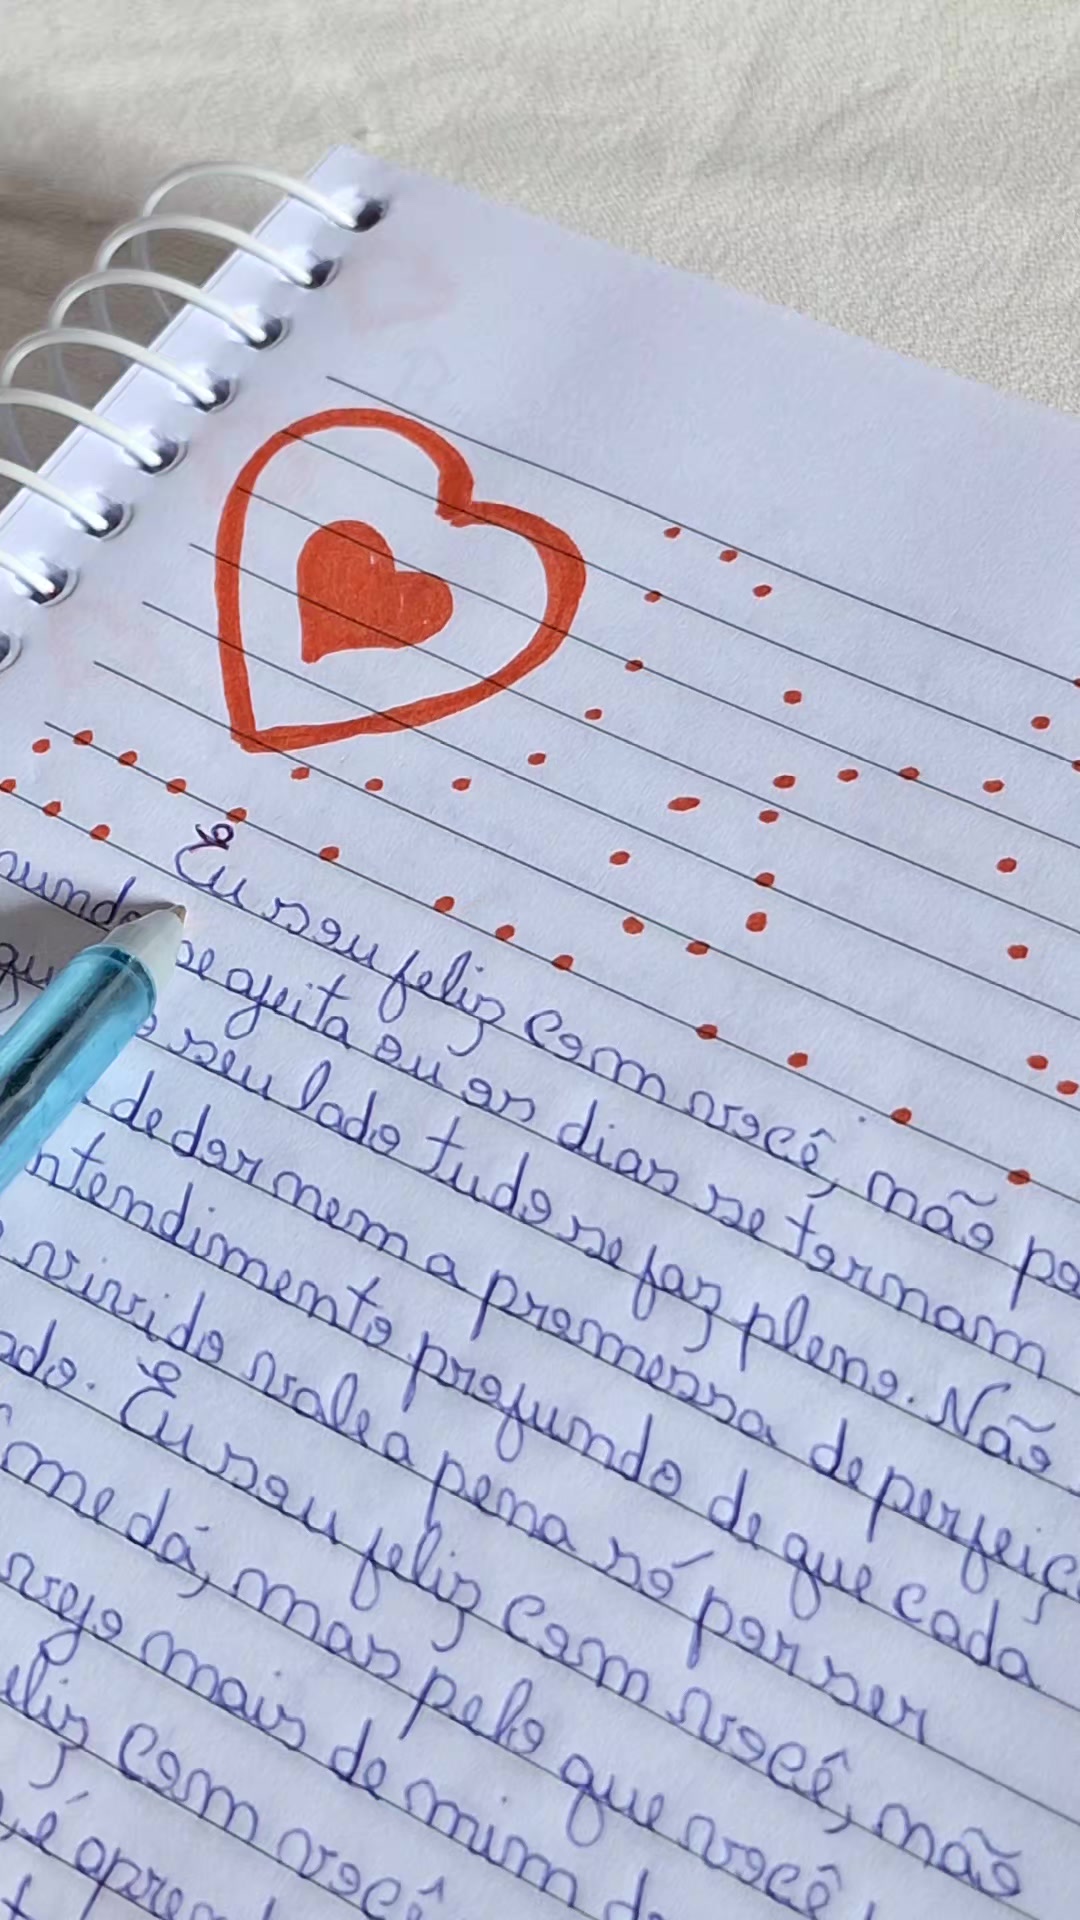 Eu sou feliz com você, não po
mundo se ajeita ou os dias se tornam
que seu lado tudo se faz pleno. Não
de dor nem a promessa de perfeiç
ntendimento profundo de que cada
vivido vale a pena só por ser
ado. Eu sou feliz com você, não
me dá, mas pelo que você
vejo mais de mim
eliz com você
é apren